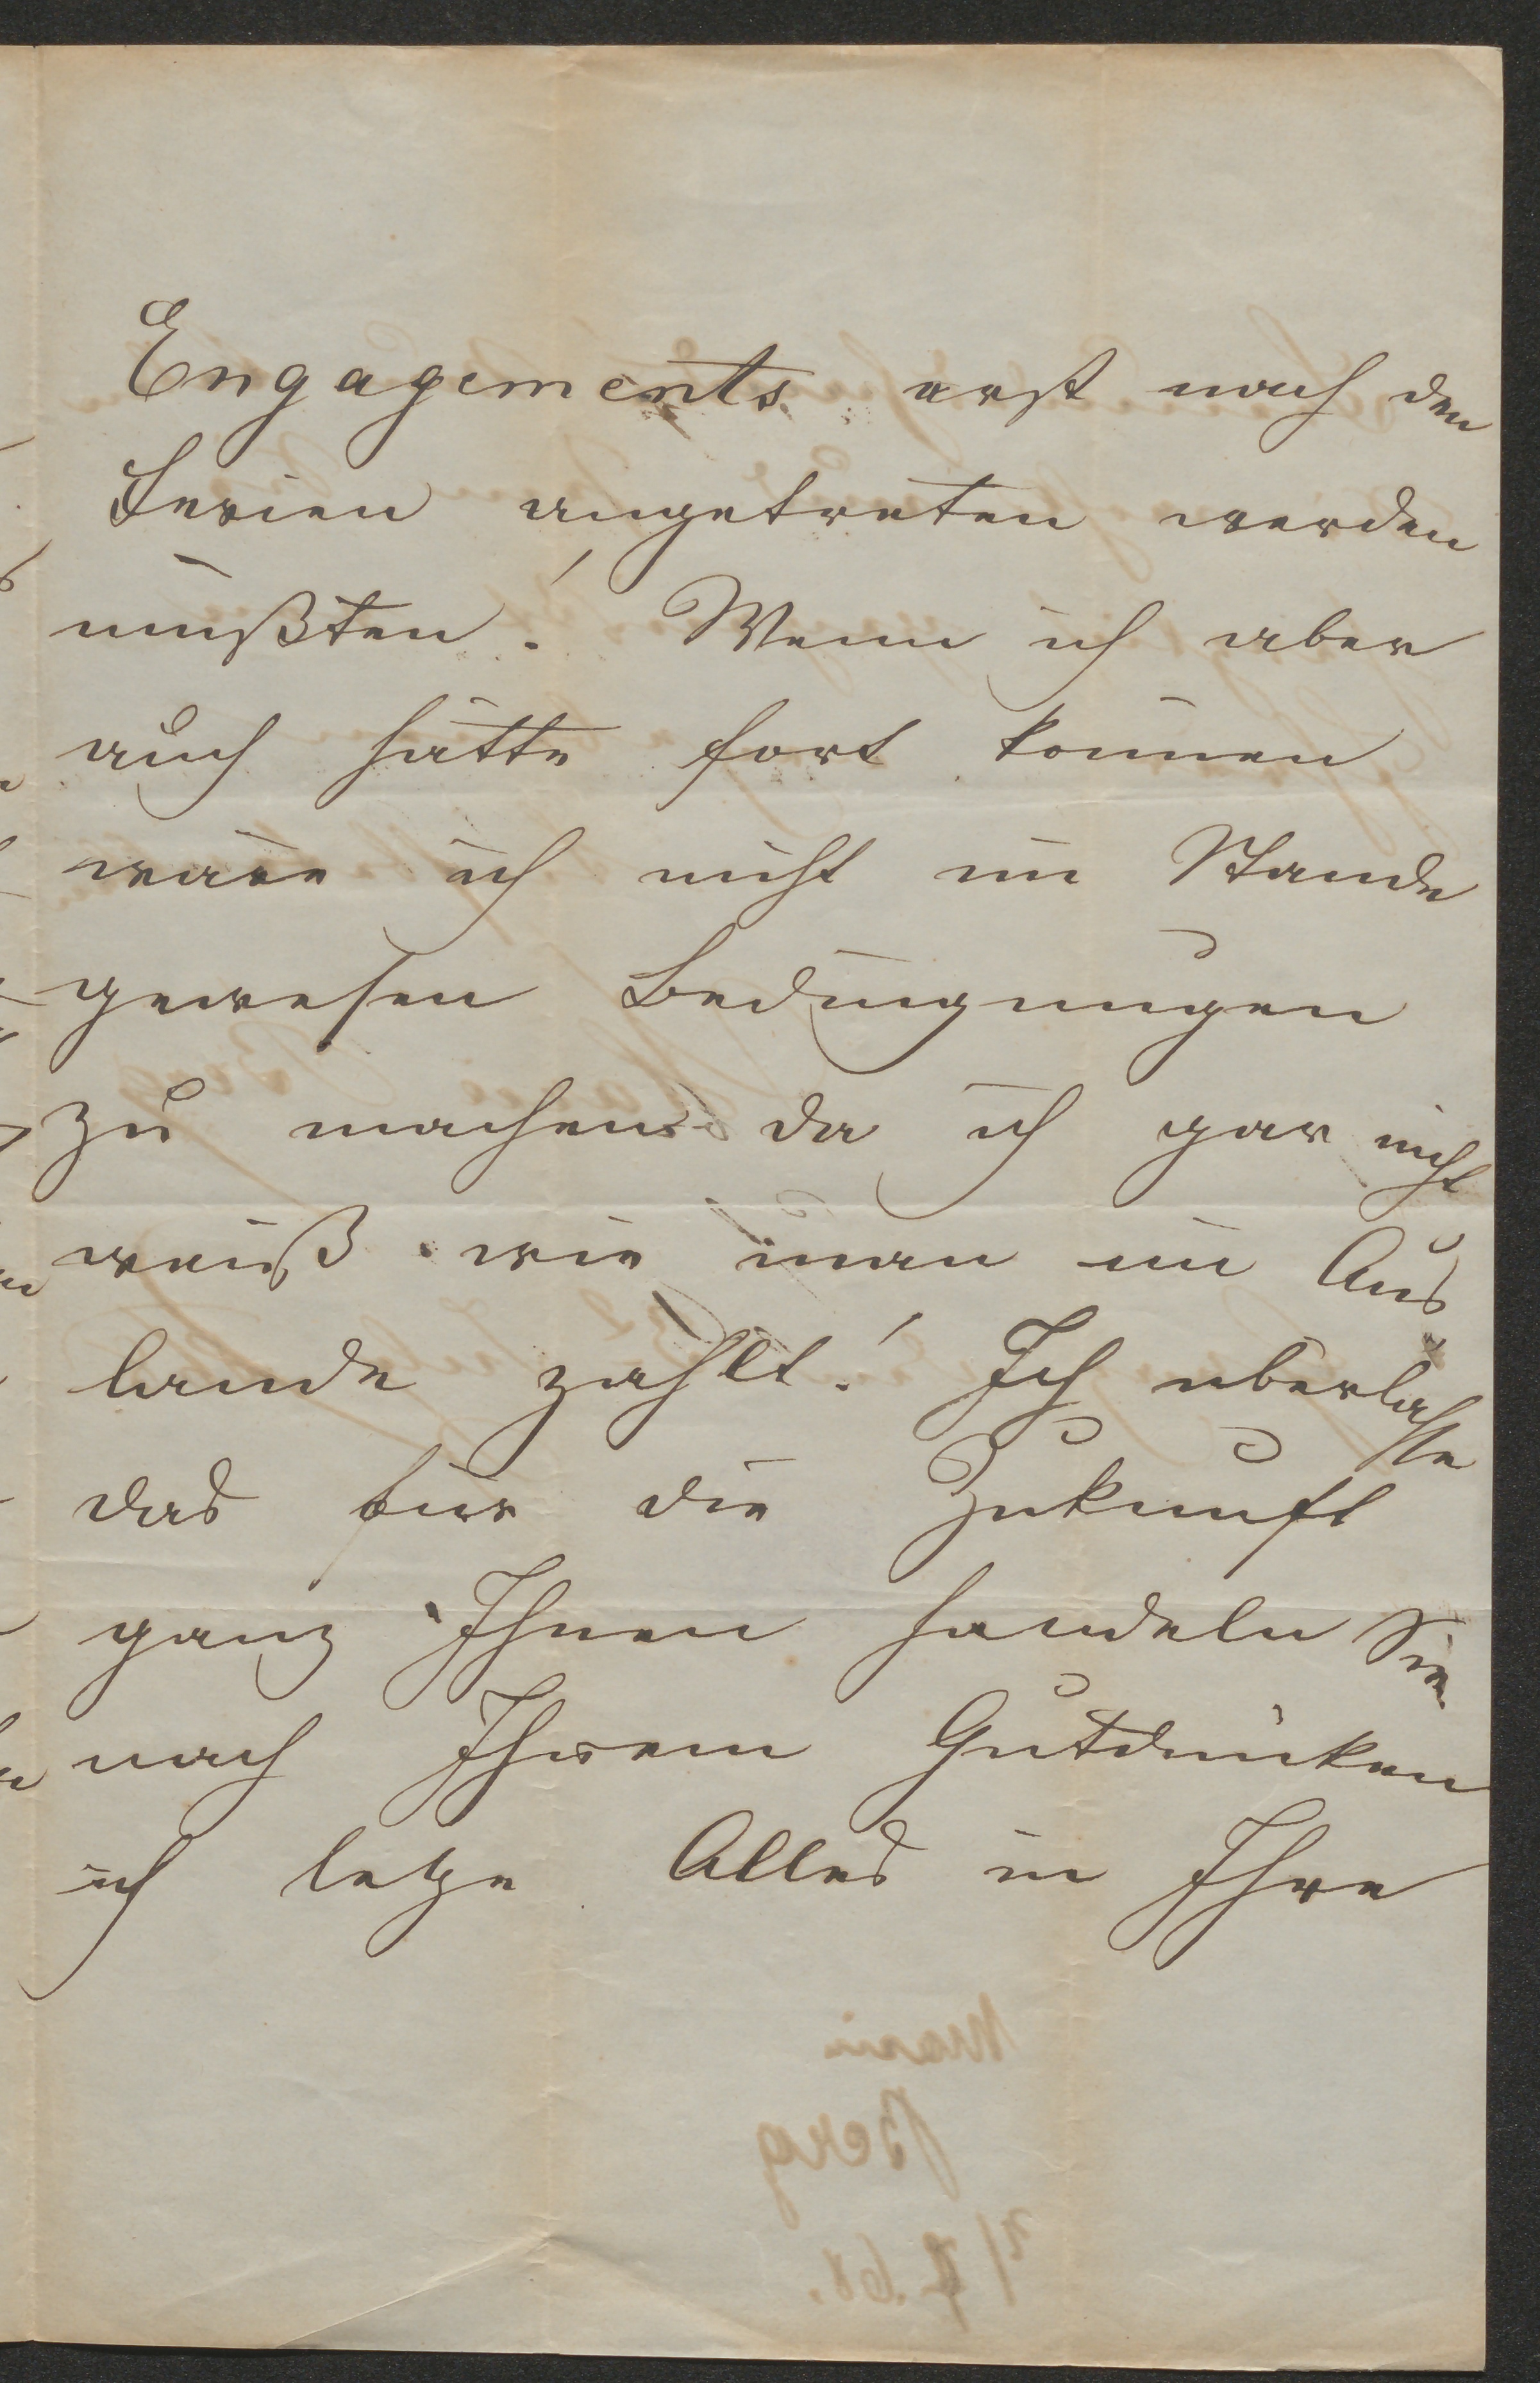 Engagements erst nach den
Ferien angetreten werden
müßten! Wenn ich aber
auch hätte fort können
wäre ich nicht im Stande
gewesen Bedingungen
zu machen da ich gar nicht
weiß wie man im Aus
lande zahlt! Ich überlaße
das für die Zukunft
ganz Ihnen handeln Sie
nach Ihrem Gutdünken
ich lege Alles in Ihre
Marie
Berg